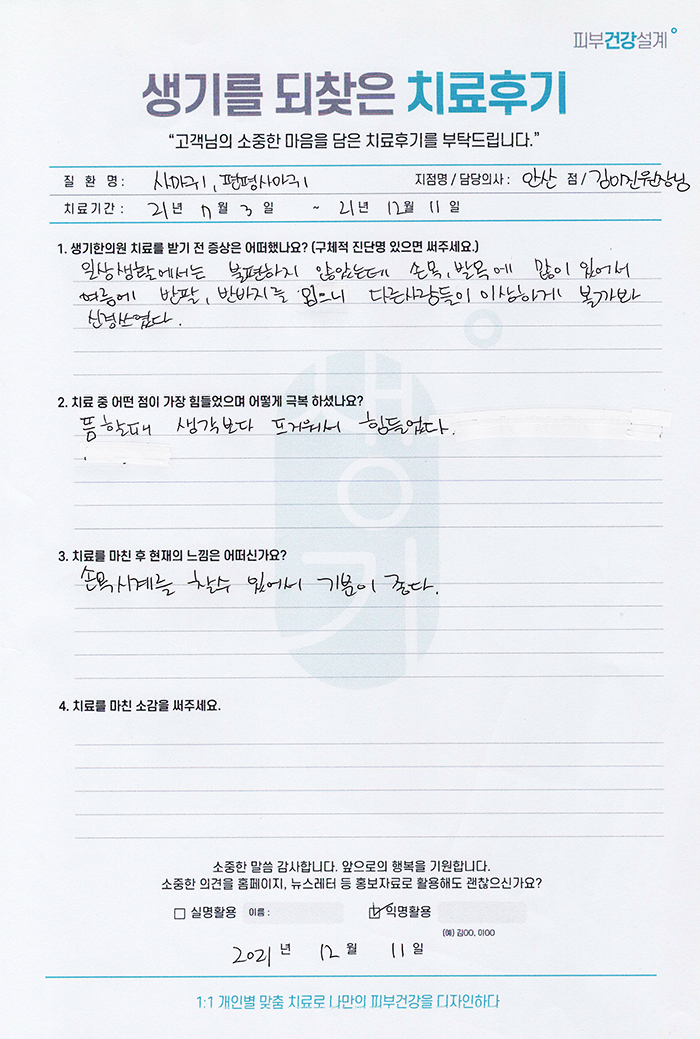 피부건강설계
생기를 되찾은 치료후기
“고객님의 소중한 마음을 담은 치료후기를 부탁드립니다.”
질 환 명 : 사마귀, 편평사마귀 지점명 / 담당의사 : 안산 점 / 김이진원장님
치료기간 : 21년 9월 3일 ~ 21년 12월 11일
1. 생기한의원 치료를 받기 전 증상은 어떠했나요? (구체적 진단명 있으면 써주세요.)
일상생활에서는 불편하지 않았는데 손목, 발목에 많이 있어서
여름에 반팔, 반바지를 입으니 다른사람들이 이상하게 볼까봐
신경쓰였다.
2. 치료 중 어떤 점이 가장 힘들었으며 어떻게 극복 하셨나요?
뜸할때 생각보다 뜨거워서 힘들었다.
3. 치료를 마친 후 현재의 느낌은 어떠신가요?
손목시계를 찰수 있어서 기분이 좋다.
4. 치료를 마친 소감을 써주세요.
생기
소중한 말씀 감사합니다. 앞으로의 행복을 기원합니다.
소중한 의견을 홈페이지, 뉴스레터 등 홍보자료로 활용해도 괜찮으신가요?
실명활용 이름 : 익명활용
(예) 김OO, 이OO
2021년 12월 11일
1:1 개인별 맞춤 치료로 나만의 피부건강을 디자인하다